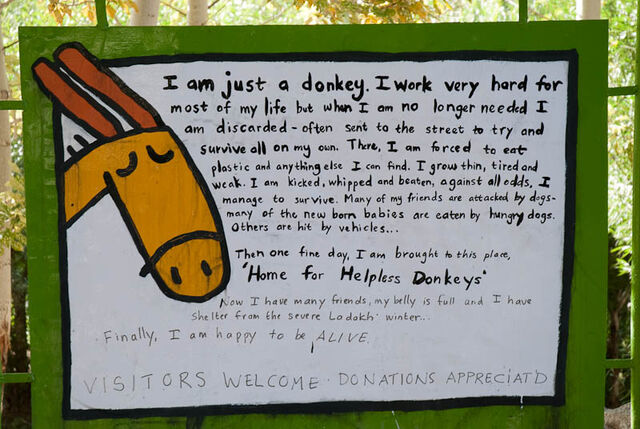 I am just a donkey. I work very hard for
most of my life but when I am no longer needed I
am discarded - often sent to the street to try and
survive all on my own. There, I am forced to eat
plastic and anything else I can find. I grow thin, tired and
weak. I am kicked, whipped and beaten, against all odds, I
manage to survive. Many of my friends are attacked by dogs-
many of the new born babies are eaten by hungry dogs.
Others are hit by vehicles...
Then one fine day, I am brought to this place,
'Home for Helpless Donkeys'
Now I have many friends, my belly is full and I have
shelter from the severe Ladakh winter...
Finally, I am happy to be ALIVE.
VISITORS WELCOME · DONATIONS APPRECIAT'D